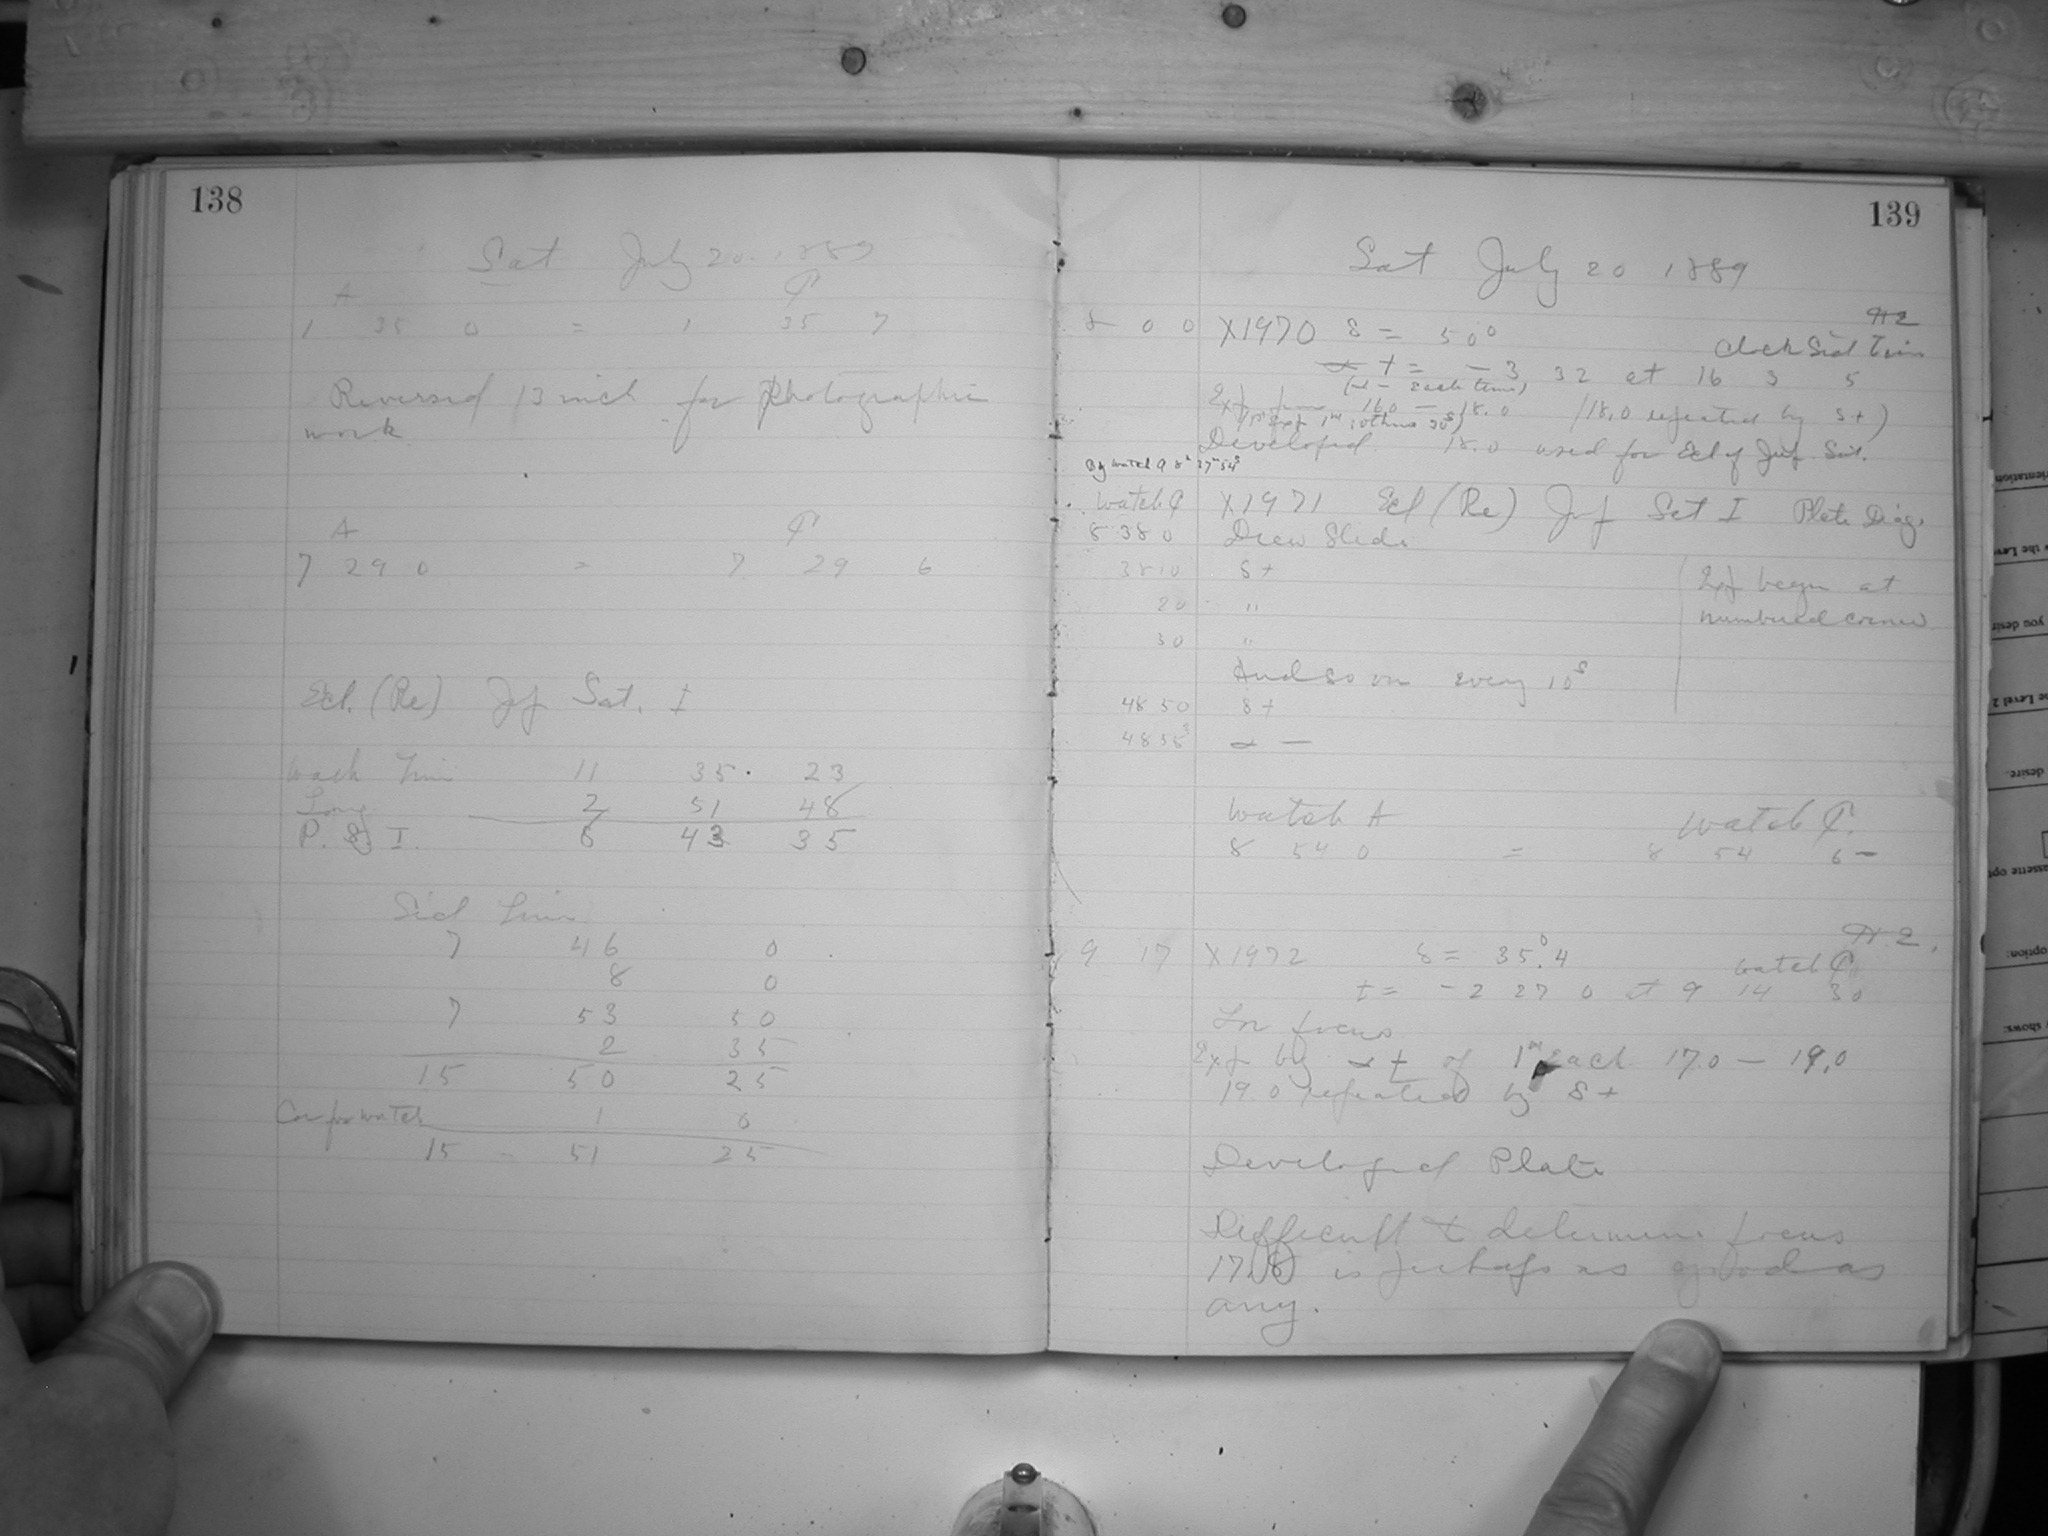 138
Sat July 20. 1889
A ₵
1 35 0 = 1 35 7
Reversed 13 inch for photographic
work
A ₵
7 29 0 = 7 29 6
Ecl. (Re) Jup Sat. I
Wash Time 11 35 23
Long 2 51 48
P. S. T. 8 43 35
Sid Time
7 46 0
8 0
7 53 50
2 35
15 50 25
Cor for watch 1 0
15 51 25
139
Sat July 20 1889
H 2
8 0 0 X1970 δ = 50°
Clock Sid Time
t = - 3 32 at 16 3 5
(α - each time)
Exp from 16.0 - 18.0 (18.0 repeated by δ+)
Developed 18.0 used for Ecl of Jup. Sat.
By watch A 8h 37m 54s
Watch ₵ X1971 Ecl (Re) Jup Sat I Plate Diag.
8 38 0 Drew Slide
38 10 δ+
20 "
30 "
Exp begin at
numbered corner
And so on every 10s
48 50 δ+
48 55s α -
Watch A Watch ₵.
8 54 0 = 8 54 6-
H 2.
9 17 X1972 δ = 35°.4
Watch ₵
t = - 2 27 0 at 9 14 30
For focus
Exp by α + of 1m each 17.0 - 19.0
19.0 repeated by δ+
Developed Plate
Difficult to determine focus
17.8 is perhaps as good as
any.